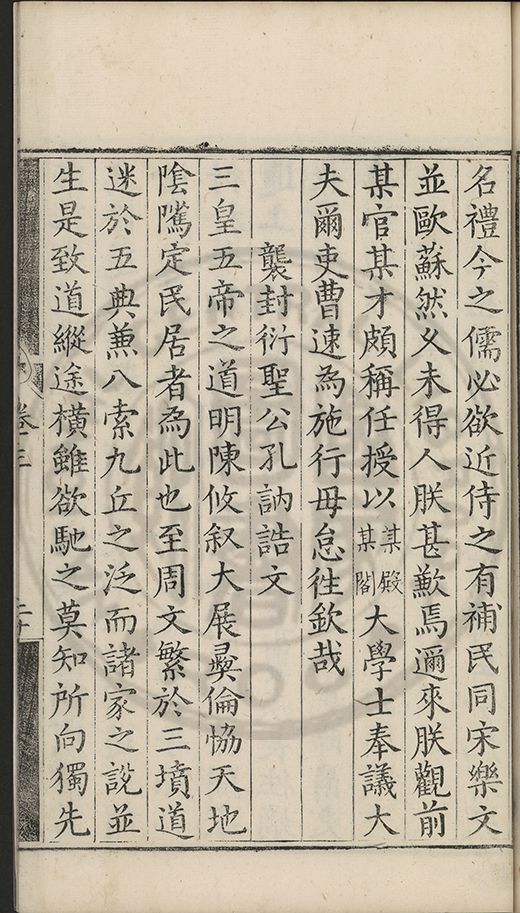 名禮今之儒必欲近侍之有補民同宋樂文
並歐蘇然乂未得人朕甚歉焉邇來朕觀前
某官某才頗稱任授以某殿某閣大學士奉議大
夫爾吏曹速為施行毋怠徃欽哉
襲封衍聖公孔訥誥文
三皇五帝之道明陳攸叙大展彞倫恊天地
隂隲定民居者為此也至周文繁於三墳道
迷於五典兼八索九丘之泛而諸家之說並
生是致道縱途橫雖欲馳之莫知所向獨先
卷三